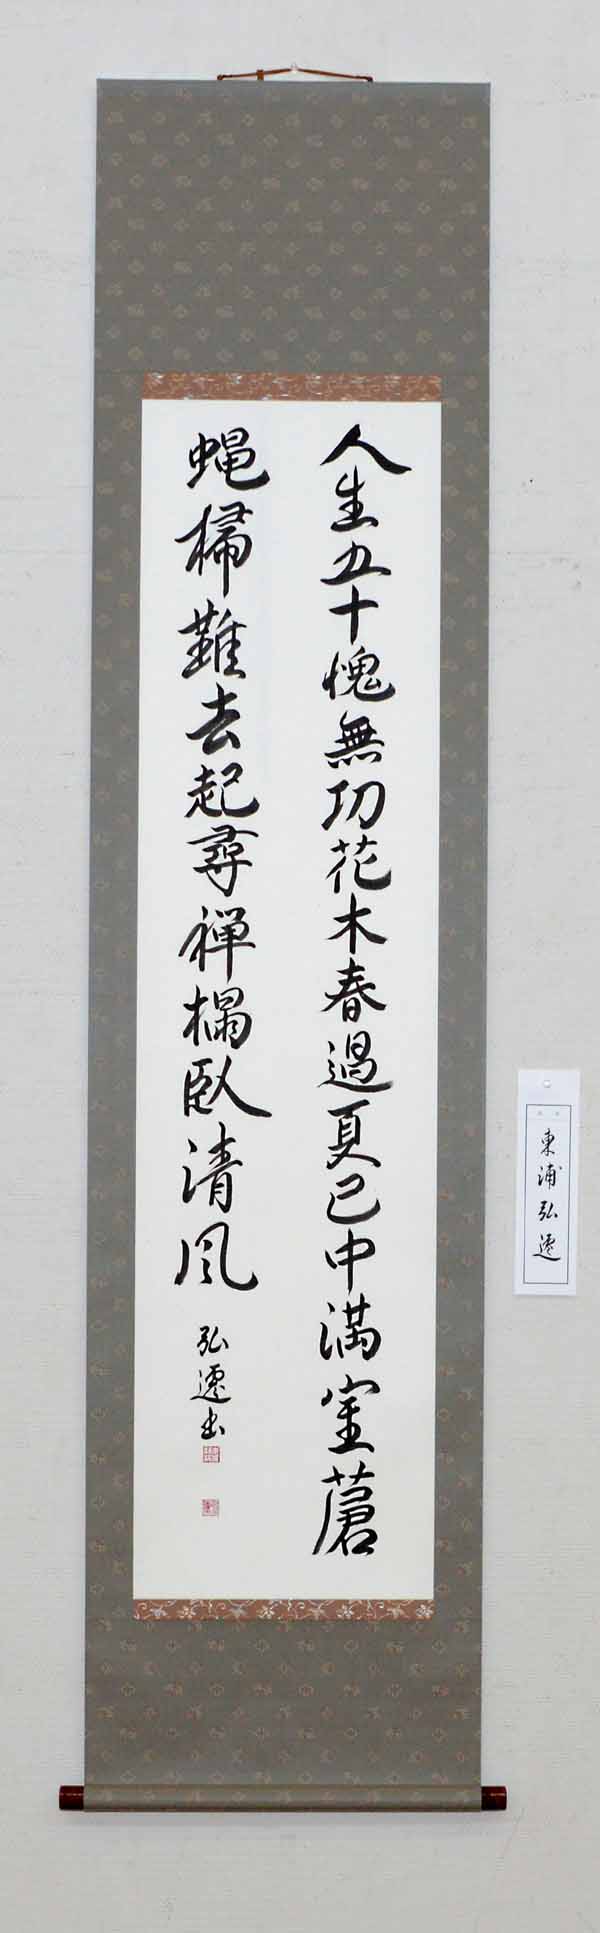 人生五十愧無功花木春過夏已中満室蒼
蝿掃難去起尋禅榻臥清風
弘遷書
東浦弘遷